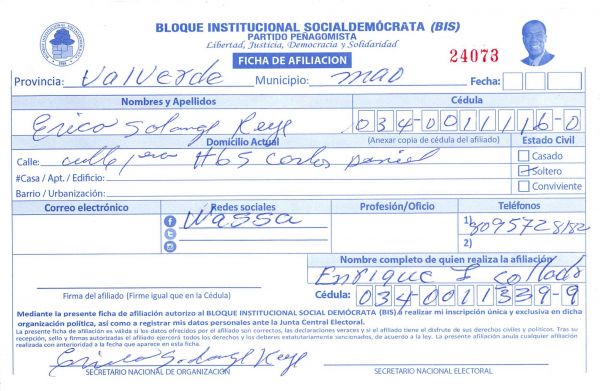 BLOQUE INSTITUCIONAL SOCIALDEMÓCRATA (BIS)
PARTIDO PEÑAGOMISTA
Libertad, Justicia, Democracia y Solidaridad
FICHA DE AFILIACION
24073
Provincia: Valverde Municipio: mao Fecha:
Nombres y Apellidos Cédula
Erico Solange Reye 034-0011116-0
(Anexar copia de cédula del afiliado)
Domicilio Actual Estado Civil
Calle: calle 1era #65 Carlos Daniel Casado
#Casa / Apt. / Edificio: Soltero
Barrio / Urbanización: Conviviente
Correo electrónico Redes sociales Profesión/Oficio Teléfonos
Wassa 1) 8095728182
2)
Nombre completo de quien realiza la afiliación
Enrique J Collado
Firma del afiliado (Firme igual que en la Cédula) Cédula: 034-0011339-9
Mediante la presente ficha de afiliación autorizo al BLOQUE INSTITUCIONAL SOCIAL DEMÓCRATA (BIS) a realizar mi inscripción única y exclusiva en dicha
organización política, así como a registrar mis datos personales ante la Junta Central Electoral.
La presente afiliación es válida si los datos ofrecidos por el afiliado son correctos, las declaraciones veraces y si el afiliado tiene el disfrute de sus derechos civiles y políticos. Tras su
recepción, sello y firmas autorizadas el afiliado ejercerá todos los derechos y los deberes estatutariamente sancionados, de acuerdo a la ley. La presente afiliación anula cualquier afiliación
realizada con anterioridad a la fecha que aparece en esta ficha.
Erico Solange Reye
SECRETARIO NACIONAL DE ORGANIZACIÓN SECRETARIO NACIONAL ELECTORAL